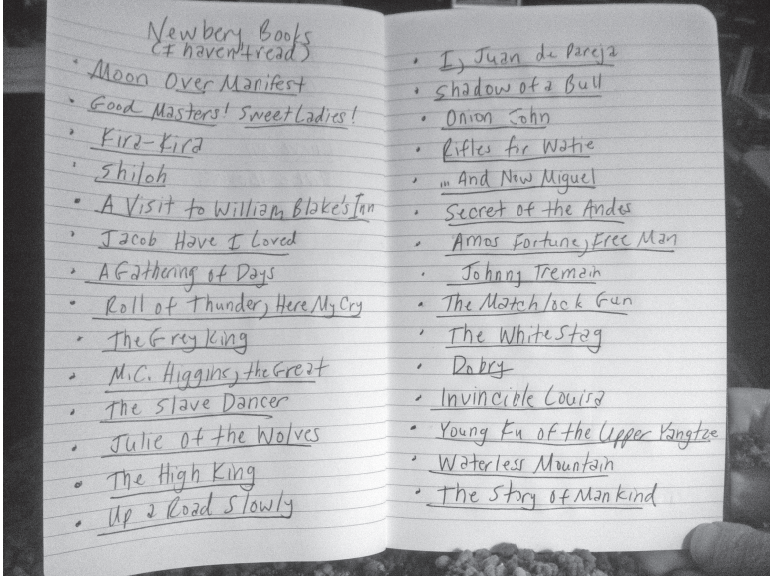 Newbery Books
(I haven't read)
• Moon Over Manifest
• Good Masters! Sweet Ladies!
• Kira-Kira
• Shiloh
• A Visit to William Blake's Inn
• Jacob Have I Loved
• A Gathering of Days
• Roll of Thunder, Here My Cry
• The Grey King
• M.C. Higgins, the Great
• The Slave Dancer
• Julie of the Wolves
• The High King
• Up a Road Slowly
• I, Juan de Pareja
• Shadow of a Bull
• Onion John
• Rifles for Watie
• ... And Now Miguel
• Secret of the Andes
• Amos Fortune, Free Man
• Johnny Tremain
• The Matchlock Gun
• The White Stag
• Dobry
• Invincible Louisa
• Young Fu of the Upper Yangtze
• Waterless Mountain
• The Story of Mankind